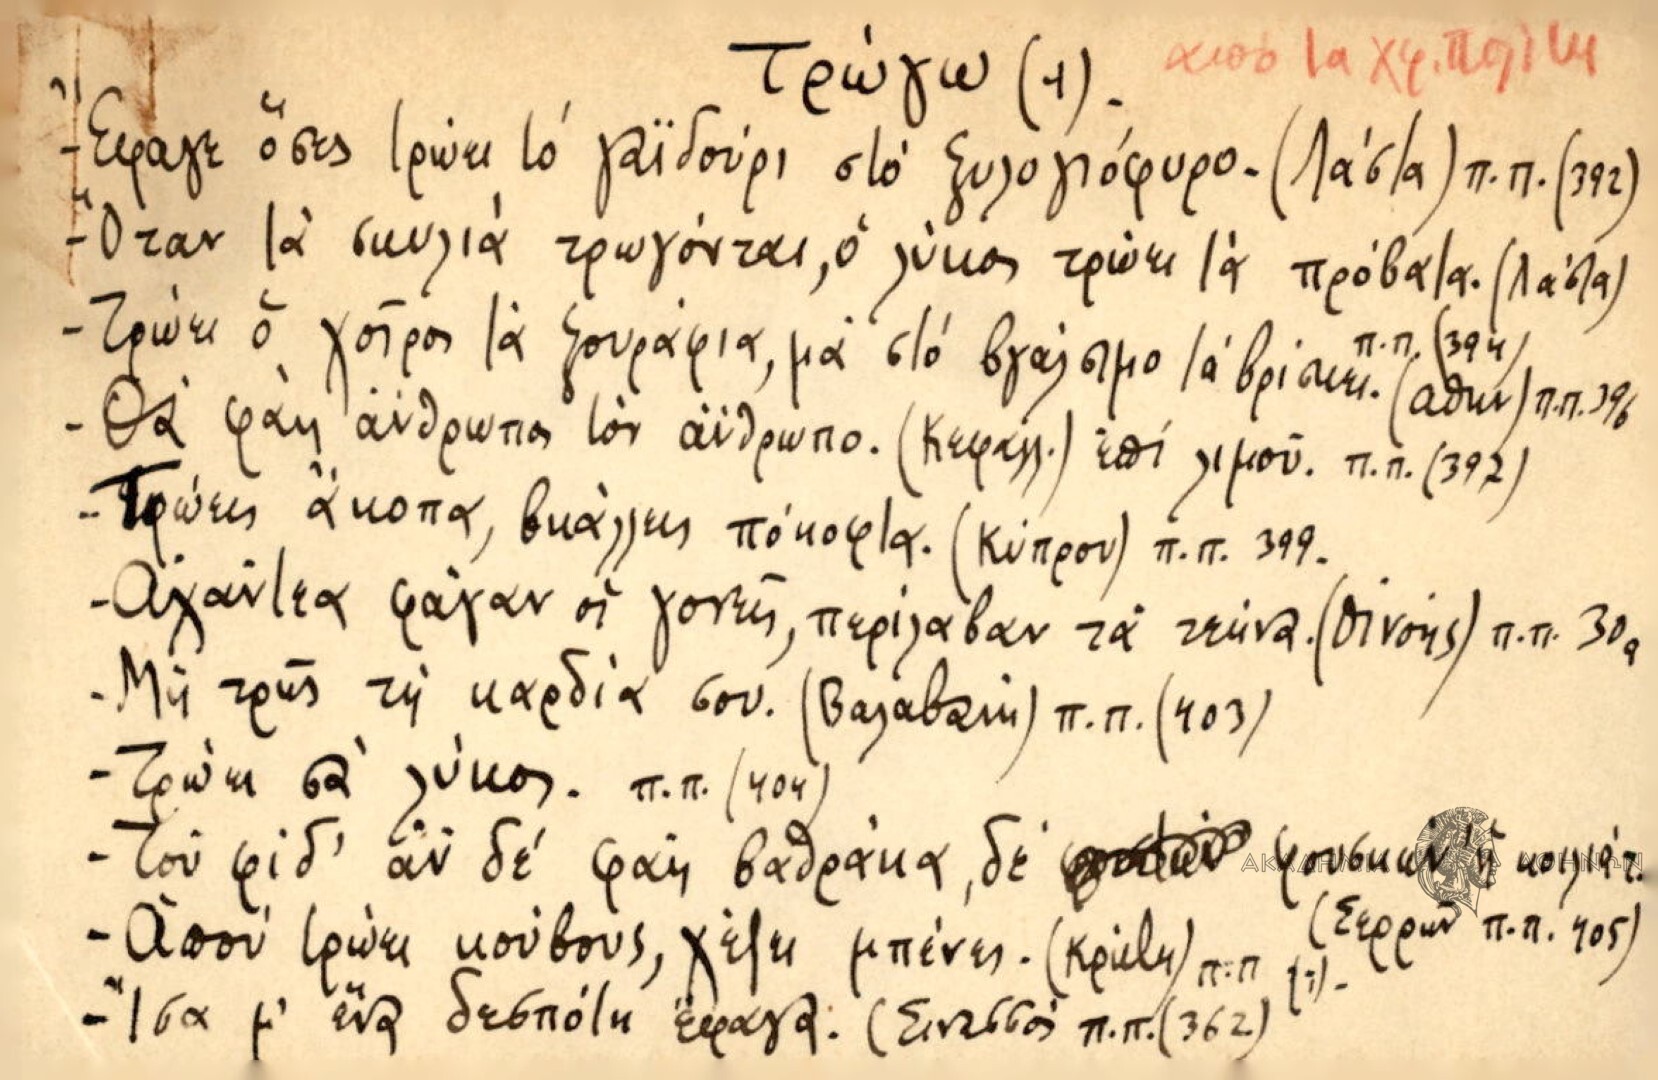 Τρώγω (1).
ἀπό τα χφ. Πολίτη
- Ἔφαγε ὅσες τρώει τό γαϊδούρι στό ξυλογιόφυρο. (Λάστα) π.π. (392)
- Ὅταν τά σκυλιά τρωγόνται, ὁ λύκος τρώει τά πρόβατα. (Λάστα)
π.π. (394)
- Τρώει ὁ χοῖρος τά ξουράφια, μά στό βγάλσιμο τά βρίσκει. (Ἀθην) π.π. 396
- Θά φάῃ ἄνθρωπος τόν ἄνθρωπο. (Κεφαλλ.) ἐπί λιμοῦ. π.π. (397)
- Τρώεις ἄκοπα, βκάλλεις πόκοφτα. (Κύπρου) π.π. 399.
- φάγαν οἱ γονεῖς, περίλαβαν τά τέκνα. (Οἰνόης) π.π.
- Μή τρῇς τή καρδιά σου. (Βαλαβάνη) π.π. (403)
- Τρώει σά λύκος. π.π. (404)
- Τοῦ φίδ' ἄν δέ φάῃ βαθράκα, δέ φουσκών' ἡ κοιλιάτ.
(Σερρῶν π.π. 405)
- Ἀπού τρώει κούβους, χέζει μπένες. (Κρήτη) π.π (?).-
- Ἴσα μ' ἕνα δεσπότη ἔφαγα. (Σινασσός π.π. (362)
ΑΚΑΔΗΜΙΑ ΑΘΗΝΩΝ